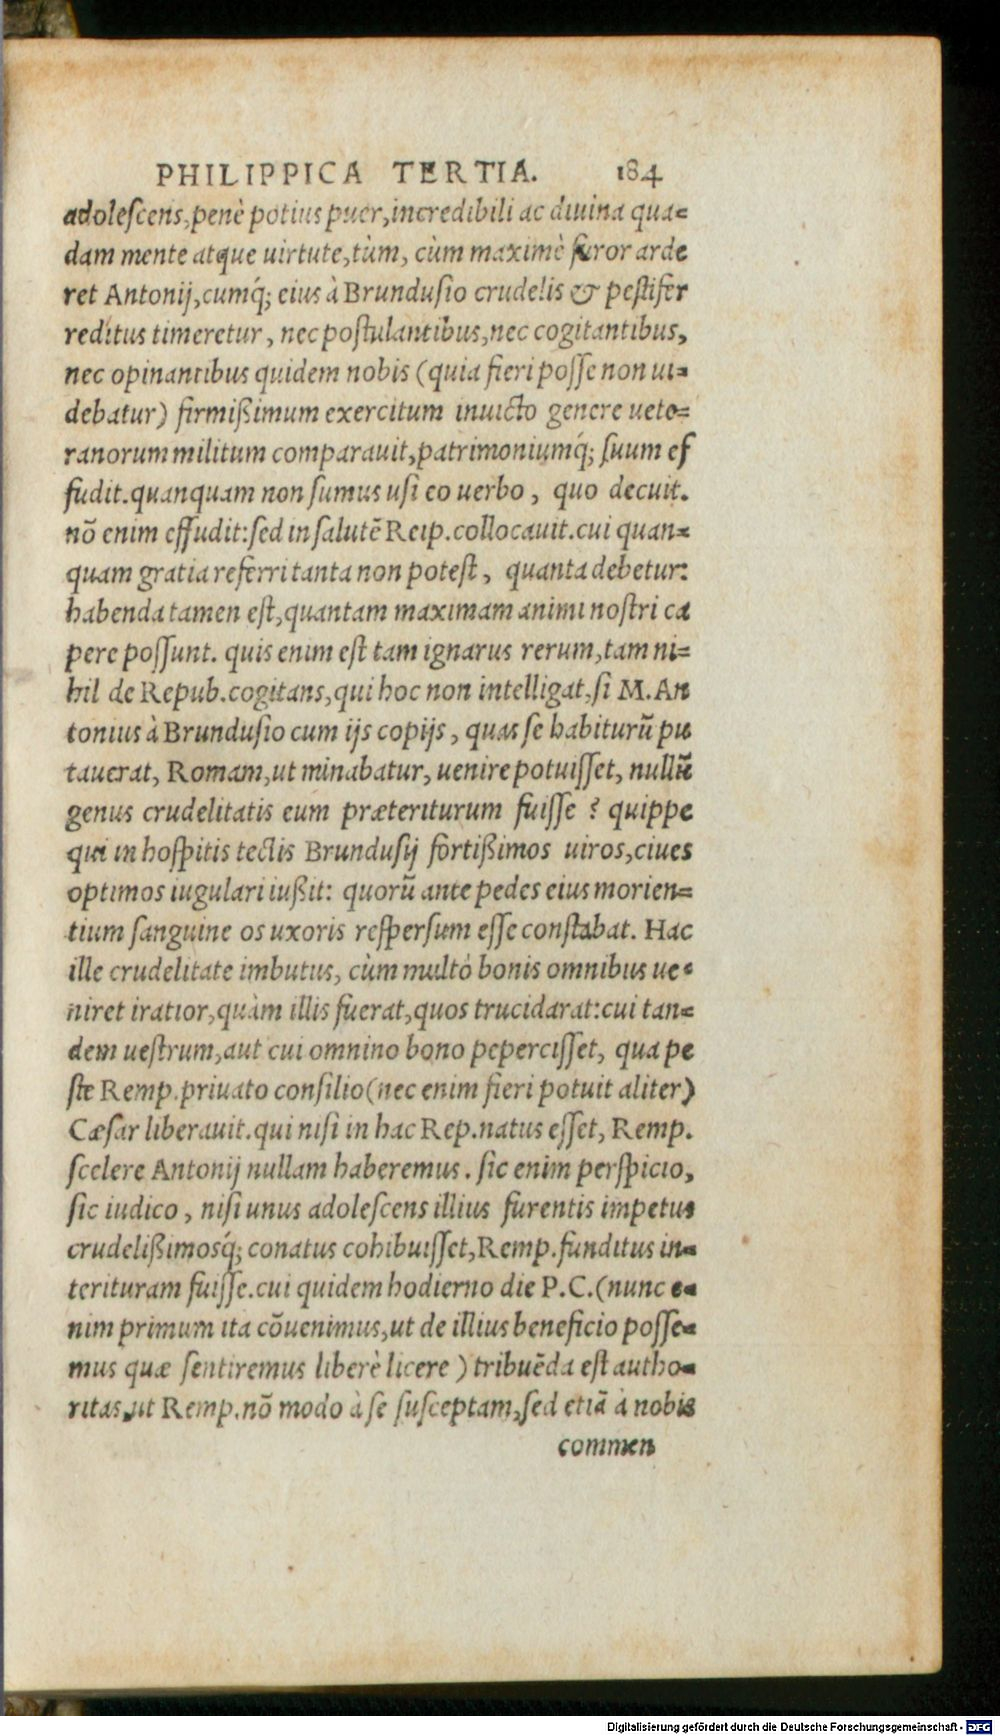 PHILIPPICA TERTIA. 184
adolescens, penè potius puer, incredibili ac diuina qua-
dam mente atque uirtute, tùm, cùm maximè furor arde
ret Antonij, cumq́; eius à Brundusio crudelis & pestifer
reditus timeretur, nec postulantibus, nec cogitantibus,
nec opinantibus quidem nobis (quia fieri posse non ui-
debatur) firmißimum exercitum inuicto genere uete-
ranorum militum comparauit, patrimoniumq́; suum ef
fudit. quanquam non sumus usi eo uerbo, quo decuit.
nõ enim effudit: sed in salutẽ Reip. collocauit. cui quan-
quam gratia referri tanta non potest, quanta debetur:
habenda tamen est, quantam maximam animi nostri ca
pere possunt. quis enim est tam ignarus rerum, tam ni-
hil de Repub. cogitans, qui hoc non intelligat, si M. An
tonius à Brundusio cum ijs copijs, quas se habiturũ pu
tauerat, Romam, ut minabatur, uenire potuisset, nullũ
genus crudelitatis eum præteriturum fuisse? quippe
qui in hospitis tectis Brundusij fortißimos uiros, ciues
optimos iugulari iußit: quorũ ante pedes eius morien-
tium sanguine os uxoris respersum esse constabat. Hac
ille crudelitate imbutus, cùm multò bonis omnibus ue-
niret iratior, quàm illis fuerat, quos trucidarat: cui tan-
dem uestrum, aut cui omnino bono pepercisset, qua pe
ste Remp. priuato consilio (nec enim fieri potuit aliter)
Cæsar liberauit. qui nisi in hac Rep. natus esset, Remp.
scelere Antonij nullam haberemus. sic enim perspicio,
sic iudico, nisi unus adolescens illius furentis impetus
crudelißimosq́; conatus cohibuisset, Remp. funditus in-
terituram fuisse. cui quidem hodierno die P.C. (nunc e-
nim primum ita cõuenimus, ut de illius beneficio posse-
mus quæ sentiremus liberè licere) tribuẽda est autho-
ritas, ut Remp. nõ modo à se susceptam, sed etiã à nobis
commen
Digitalisierung gefördert durch die Deutsche Forschungsgemeinschaft - DFG